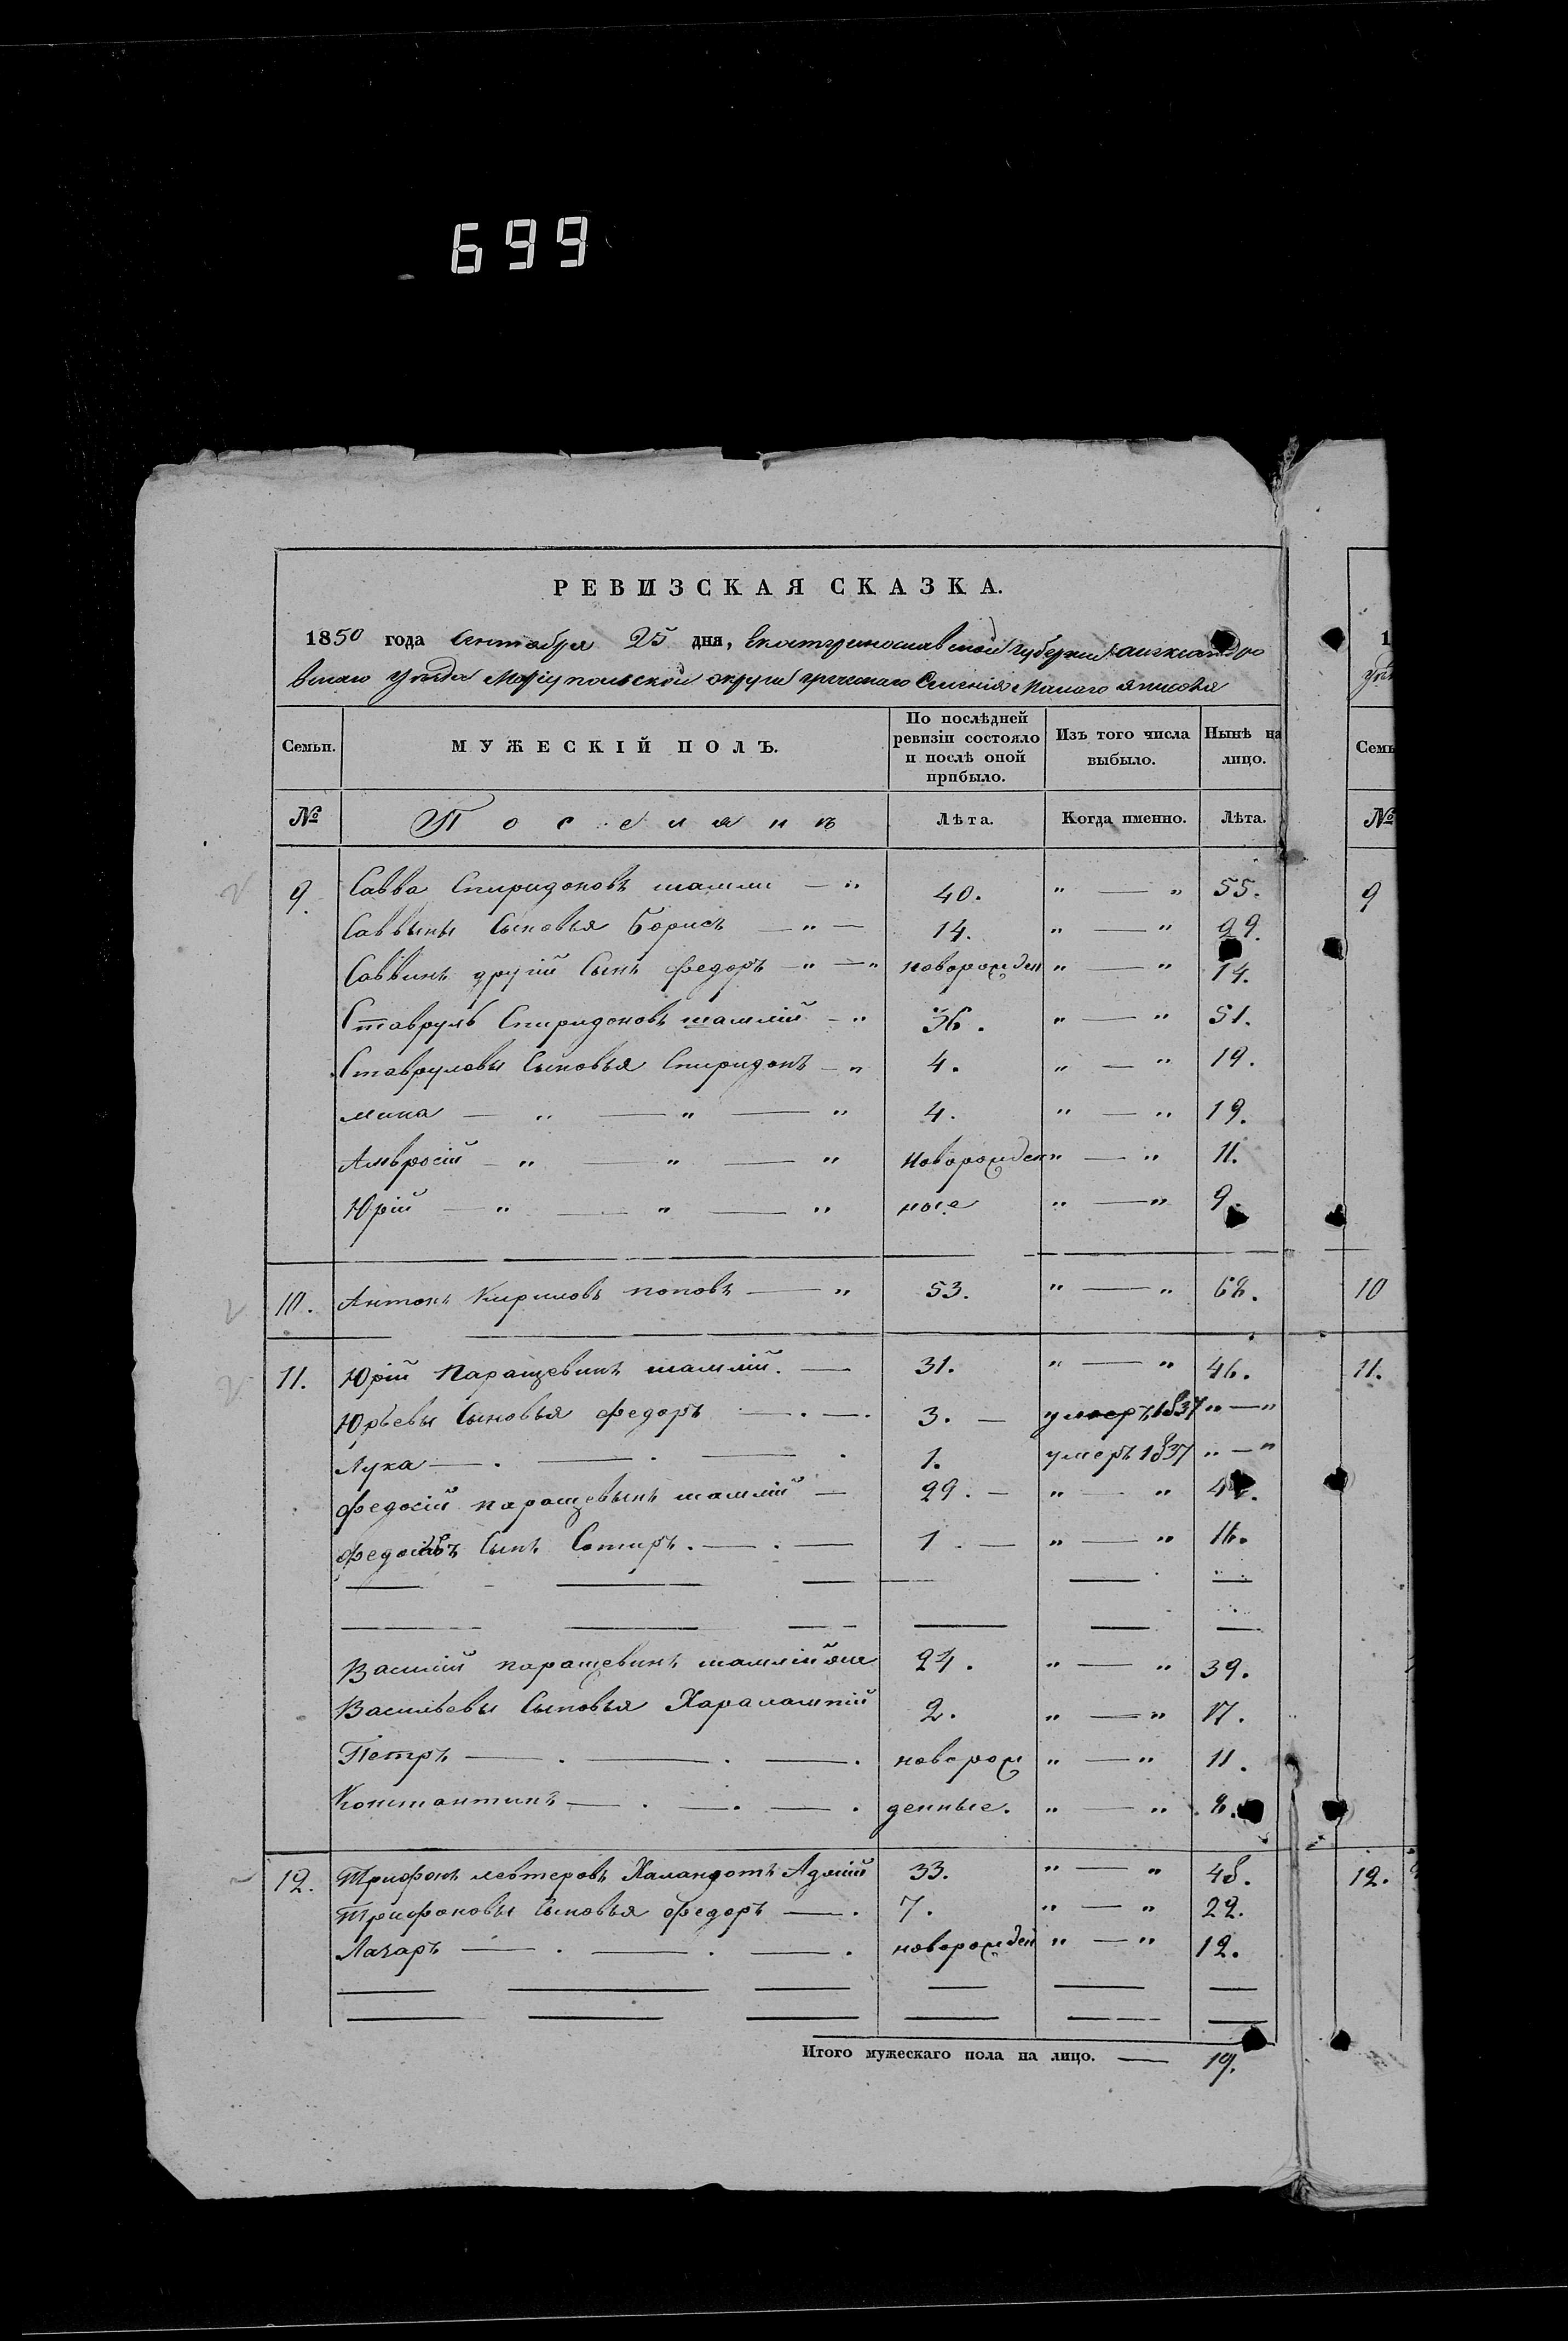 699
РЕВИЗСКАЯ СКАЗКА.
1850 года Сентября 25 дня, Екатеринославской губернии Александро
вскаго уѣзда Маріупольской округи греческаго Селенія Малаго Янисоля
Семьи. МУЖЕСКІЙ ПОЛЪ. По послѣдней ревизіи состояло и послѣ оной прибыло. Изъ того числа выбыло. Нынѣ на лицо.
№ Поселянъ Лѣта. Когда именно. Лѣта.
9. Савва Спиридоновъ шамли — " 40. " — " 55.
Саввины Сыновья Борисъ — " — 14. " — " 29.
Саввинъ другій Сынъ Федоръ — " — " новорожден " — " 14.
Ставруль Спиридоновъ шамлій — " 36. " — " 51.
Ставруловы Сыновья Спиридонъ — " 4. " — " 19.
мина — " — " — " 4. " — " 19.
Амвросій — " — " — " Новорожден " — " 11.
Юрій — " — " — " ные " — " 9.
10. Антонъ Кириловъ поповъ — " 53. " — " 68.
11. Юрій Паращевинъ шамлій. — 31. " — " 46.
Юрьевы Сыновья федоръ — . — . 3. — умеръ 1837 " — "
Лука — . — . — . 1. умеръ 1837 " — "
Федосій паращевынъ шамлій — 29. — " — " 4
Сынъ Сотиръ. — . — 1. — " — " 16.
Василій паращевинъ 24. " — " 39.
Васильевы Сыновья Харалампій 2. " — " 17.
Петръ — . — . — . новорож " — " 11.
Константинъ — . — . — . денные. " — " 8.
12. Трифонъ левтеровъ Адлій 33. " — " 48.
Трифоновы Сыновья федоръ — . 7. " — " 22.
Лазаръ — . — . — . новорожден " — " 12.
Итого мужескаго пола на лицо. — 19.
1
Семь
№
9
10
11.
12.